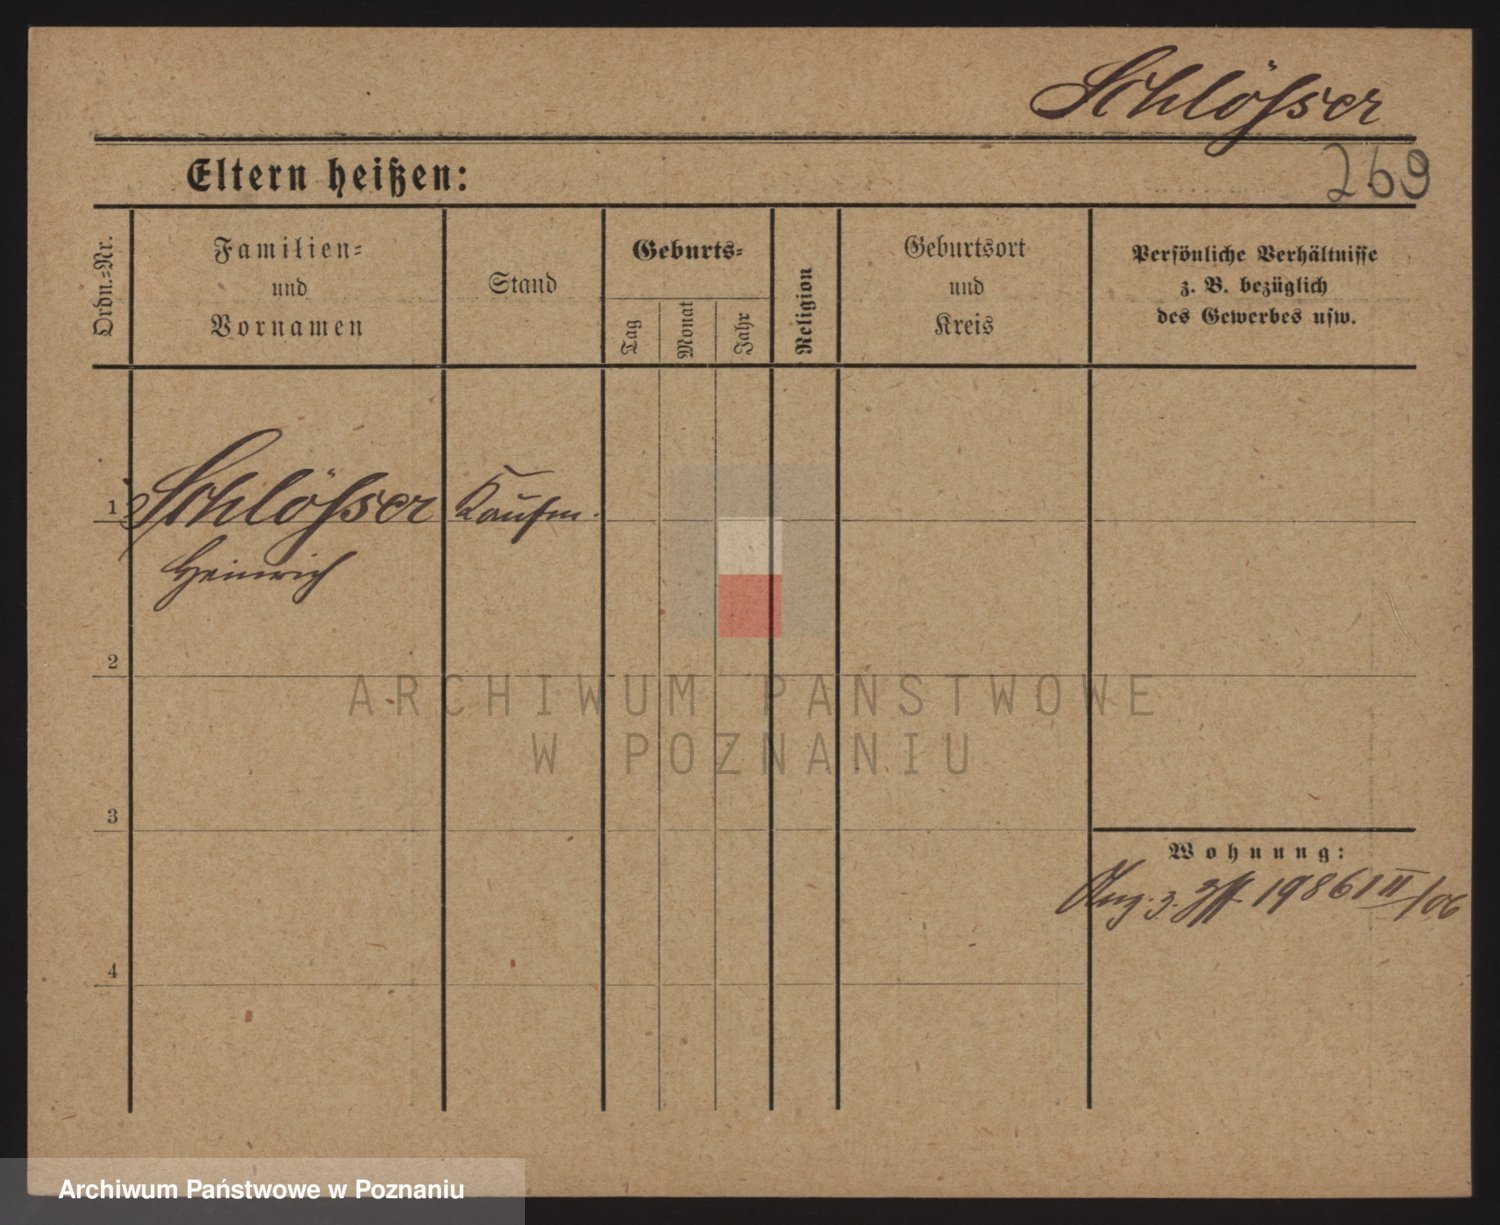 Schlösser
Eltern heißen:
269
Ordn.-Nr.
Familien-
und
Vornamen
Stand
Geburts-
Tag
Monat
Jahr
Religion
Geburtsort
und
Kreis
Persönliche Verhältnisse
z. B. bezüglich
des Gewerbes usw.
1 Schlösser Kaufm.
Heinrich
2
ARCHIWUM PAŃSTWOWE
W POZNANIU
3
Wohnung:
19861 II/06
4
Archiwum Państwowe w Poznaniu